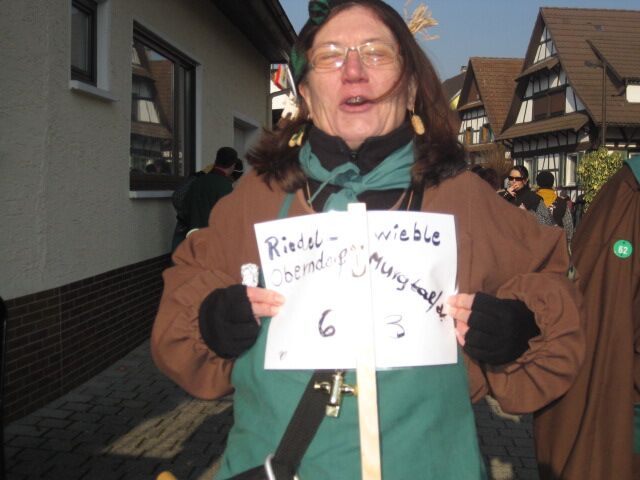 Riedel- wieble
Oberndorf Murgtal/
6 3
62